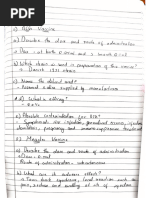 c) BCG Vaccine
a) Describe the dose and route of administration
= Dose - at birth 0.05ml and > 1 month 0.1ml
b) Which strain is used in preparation of this vaccine?
= Danish 1331 strain
c) Name the diluent used?
= Normal saline supplied by manufacturers
a) What is
c) Possible contraindication for
= Symptomatic HIV infection, generalised eczema, infective
dermatosis, pregnancy and immunosuppressive treatment
Measles Vaccine
a) Describe the dose and route of administration
= Dose - 0.5ml
Route of administration - subcutaneous
b) What are its adverse effects?
= Toxic shock syndrome, local reaction such as
pain, swelling and at site of injection